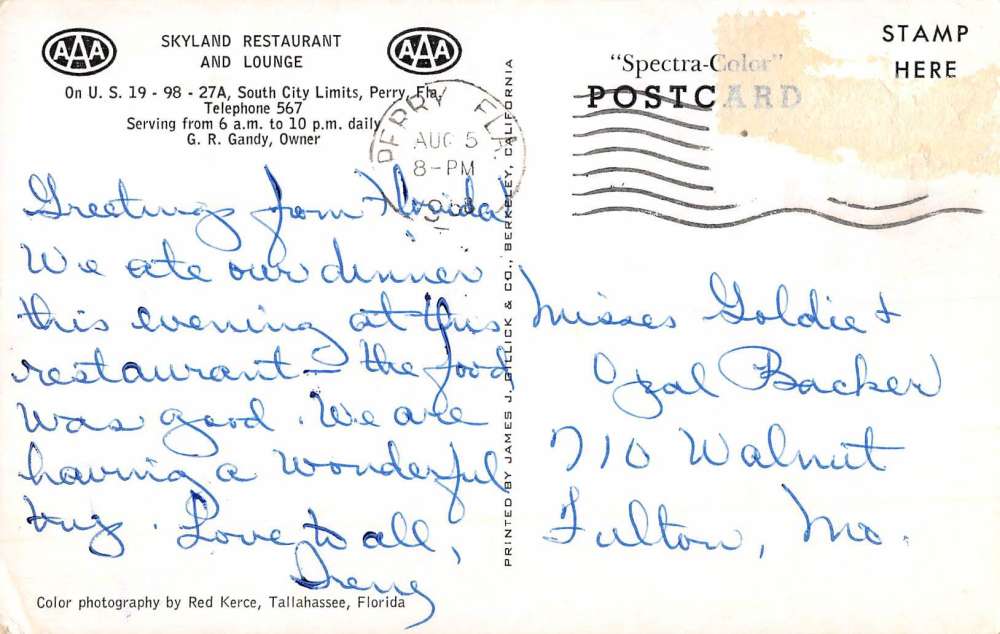 AAA
SKYLAND RESTAURANT
AND LOUNGE
AAA
On U. S. 19 - 98 - 27A, South City Limits, Perry, Fla.
Telephone 567
Serving from 6 a.m. to 10 p.m. daily
G. R. Gandy, Owner
PERRY FLA.
AUG 5
8-PM
"Spectra-Color"
POSTCARD
STAMP
HERE
Greetings from Florida!
We ate our dinner
this evening at this
restaurant - the food
was good. We are
having a wonderful
trip. Love to all,
Irene
Misses Goldie &
Opal Backer
710 Walnut
Fulton, Mo.
PRINTED BY JAMES J. GILLICK & CO., BERKELEY, CALIFORNIA
Color photography by Red Kerce, Tallahassee, Florida